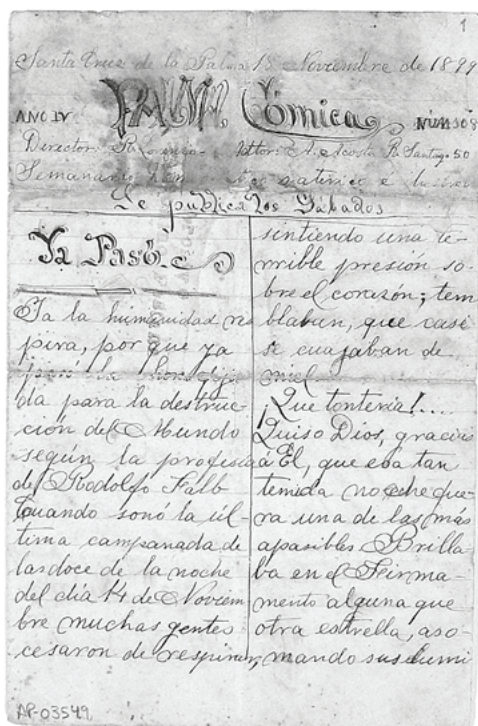 1
Santa Cruz de la Palma 15 Noviembre de 1899
AÑO IV PALMA Cómica NÚM 108
Director: R. Lorenzo - Editor: A. Acosta R. Santiago 50
Semanario satírico é
Se publica los Sábados
Ya Pasó.
Ya la humanidad res
pira, por que ya
pasó la hora fija
da para la destruc-
ción del Mundo
según la profesía
de Rodolfo Falb
Cuando sonó la úl-
tima campanada de
las doce de la noche
del día 14 de Noviem
bre muchas gentes
cesaron de respirar,
sintiendo una te-
rrible presión so-
bre el corazón; tem
blaban, que casi
se cuajaban de
miel
¡Que tontería!....
Quiso Dios, gracias
á Él, que esa tan
temida noche fue-
ra una de las más
apasibles Brilla-
ba en el Firma-
mento alguna que
otra estrella, aso-
mando sus lumi
AP-03549